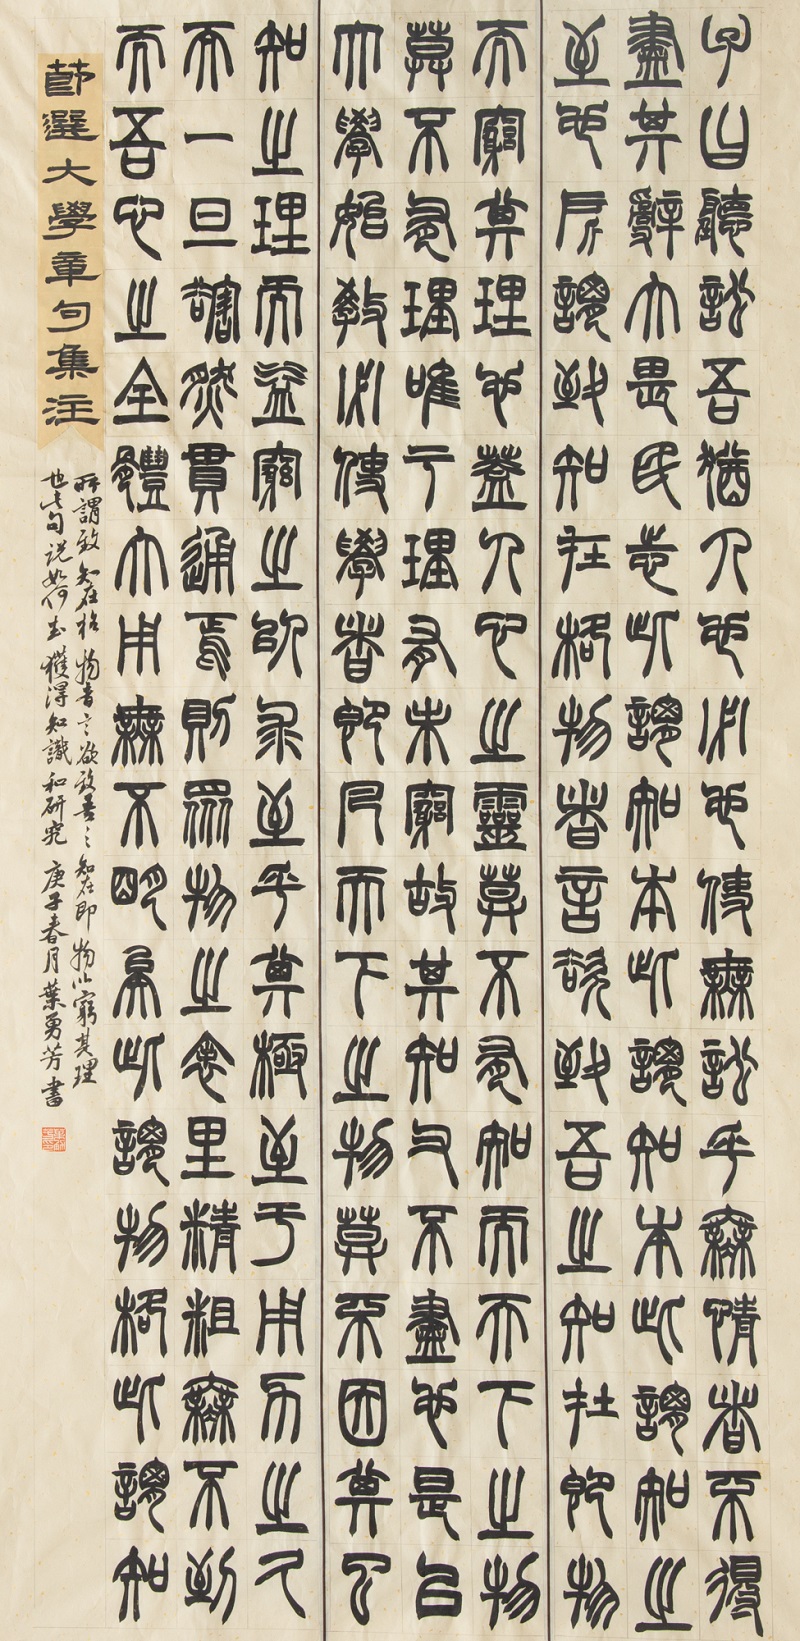 子曰聽訟吾猶人也必也使無訟乎無情者不得
盡其辭大畏民志此謂知本此謂知本此謂知之
至也所謂致知在格物者言欲致吾之知在即物
而窮其理也蓋人心之靈莫不有知而天下之物
莫不有理唯于理有未窮故其知又不盡也是以
大學始教必使學者即凡天下之物莫不因其已
知之理而益窮之以求至乎其極至于用力之久
而一旦豁然貫通焉則眾物之表里精粗無不到
而吾心之全體大用無不明矣此謂物格此謂知
節選大學章句集注
所謂致知在格物者言欲致吾之知在即物以窮其理
也此句說如何去獲得知識和研究 庚子春月葉勇芳書